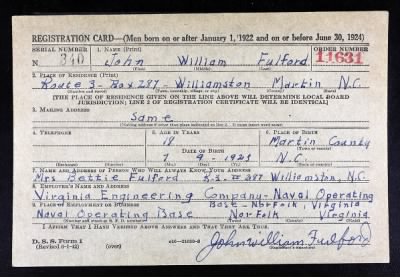 REGISTRATION CARD—(Men born on or after January 1, 1922 and on or before June 30, 1924)
SERIAL NUMBER 1. NAME (Print) ORDER NUMBER
N 340 John William Fulford 11631
(First) (Middle) (Last)
2. PLACE OF RESIDENCE (Print)
Route 3 - Box 287 - Williamston Martin N.C.
(Number and street) (Town, township, village, or city) (County) (State)
[THE PLACE OF RESIDENCE GIVEN ON THE LINE ABOVE WILL DETERMINE LOCAL BOARD
JURISDICTION; LINE 2 OF REGISTRATION CERTIFICATE WILL BE IDENTICAL]
3. MAILING ADDRESS
Same
[Mailing address if other than place indicated on line 2. If same insert word same]
4. TELEPHONE 5. AGE IN YEARS 6. PLACE OF BIRTH
18 Martin County
DATE OF BIRTH (Town or county)
9 N.C.
(Exchange) (Number) (Mo.) (Day) (Yr.) (State or country)
7. NAME AND ADDRESS OF PERSON WHO WILL ALWAYS KNOW YOUR ADDRESS
Mrs Bettie Fulford 287 Williamston, N.C.
8. EMPLOYER'S NAME AND ADDRESS
Virginia Engineering Company - Naval Operating
Base - Norfolk, Virginia
9. PLACE OF EMPLOYMENT OR BUSINESS
Naval Operating Base Norfolk Virginia
(Number and street or R. F. D. number) (Town) (County) (State)
I AFFIRM THAT I HAVE VERIFIED ABOVE ANSWERS AND THAT THEY ARE TRUE.
D. S. S. Form 1
(Revised 6-9-42) (over) John William Fulford